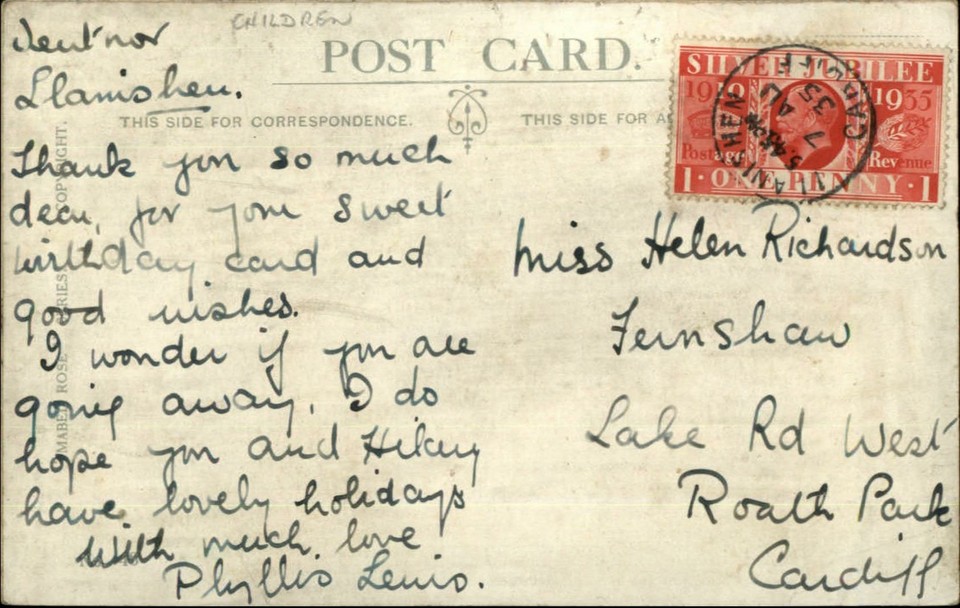 CHILDREN
Ventnor
Llanishen.
POST CARD.
THIS SIDE FOR CORRESPONDENCE.
THIS SIDE FOR
Thank you so much
dear, for your sweet
birthday card and
good wishes.
I wonder if you are
going away. I do
hope you and Hilary
have lovely holidays
With much love
Phyllis Lewis.
MABEL ROSE
COPYRIGHT.
SILVER JUBILEE
1910 1935
Postage Revenue
1 · ONE PENNY · 1
LLANISHEN CARDIFF
5.45 PM
7 AU
35
Miss Helen Richardson
Fernshaw
Lake Rd West
Roath Park
Cardiff